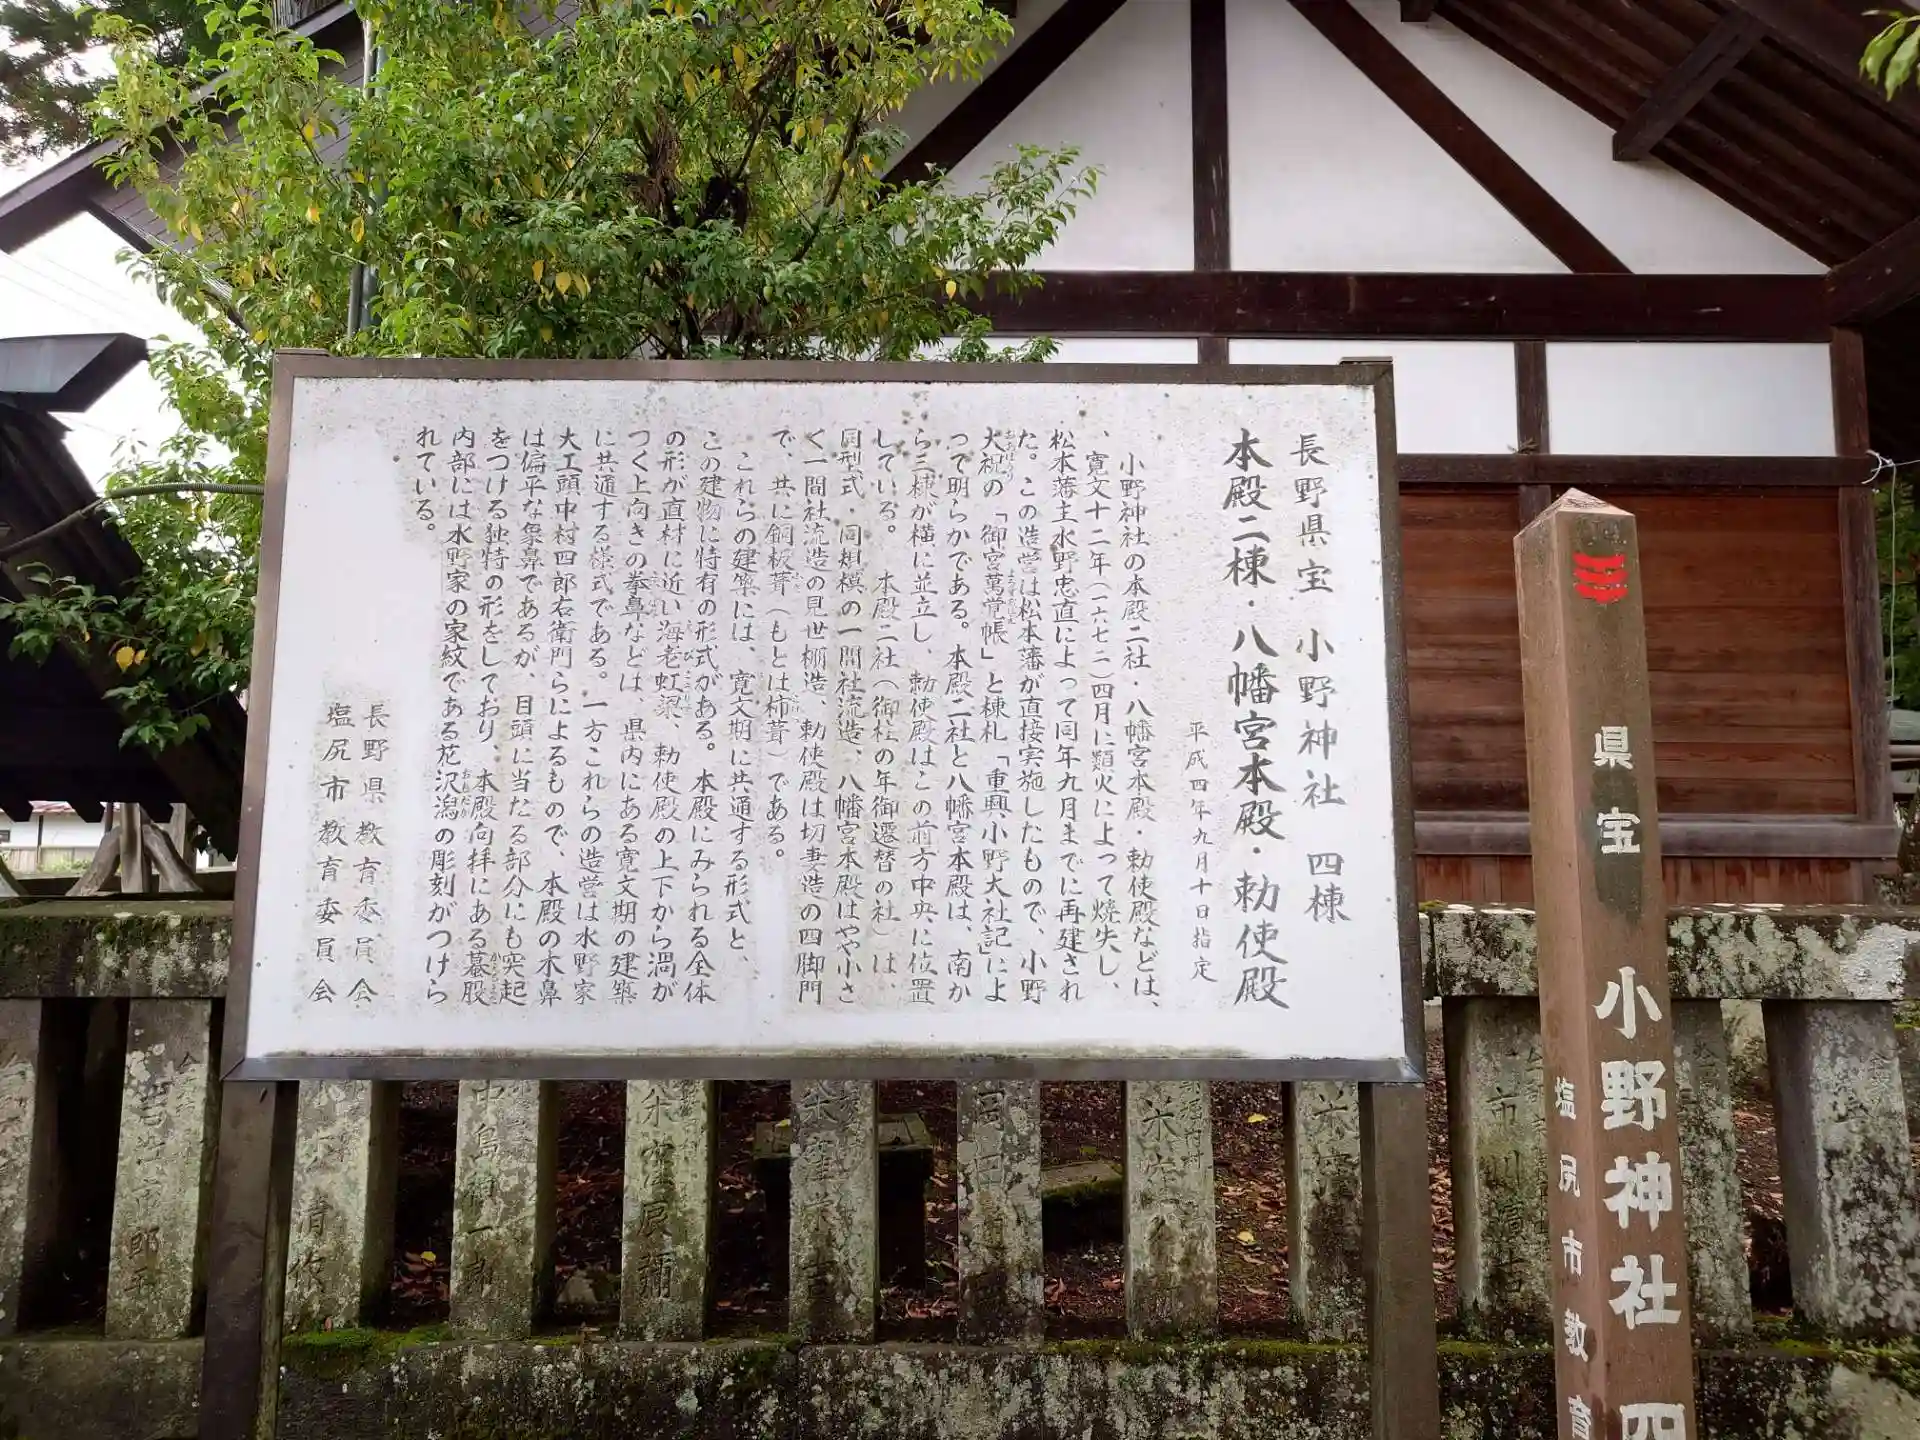 長野県宝 小野神社 四棟
本殿二棟・八幡宮本殿・勅使殿
平成四年九月十日指定
小野神社の本殿二社・八幡宮本殿・勅使殿などは、
、寛文十二年(一六七二)四月に類火によって焼失し、
松本藩主水野忠直によって同年九月までに再建され
た。この造営は松本藩が直接実施したもので、小野
大祝の「御宮萬覚帳」と棟札「重興小野大社記」によ
って明らかである。本殿二社と八幡宮本殿は、南か
ら三棟が横に並立し、勅使殿はこの前方中央に位置
している。 本殿二社(御柱の年御遷替の社)は、
同型式・同規模の一間社流造、八幡宮本殿はやや小さ
く一間社流造の見世棚造、勅使殿は切妻造の四脚門
で、共に銅板葺(もとは柿葺)である。
これらの建築には、寛文期に共通する形式と、
この建物に特有の形式がある。本殿にみられる全体
の形が直材に近い海老虹梁、勅使殿の上下から渦が
つく上向きの拳鼻などは、県内にある寛文期の建築
に共通する様式である。一方これらの造営は水野家
大工頭中村四郎右衛門らによるもので、本殿の木鼻
は偏平な象鼻であるが、目頭に当たる部分にも突起
をつける独特の形をしており、本殿向拝にある蟇股
内部には水野家の家紋である花沢潟の彫刻がつけら
れている。
長野県教育委員会
塩尻市教育委員会
県宝 小野神社 四
塩尻市教育